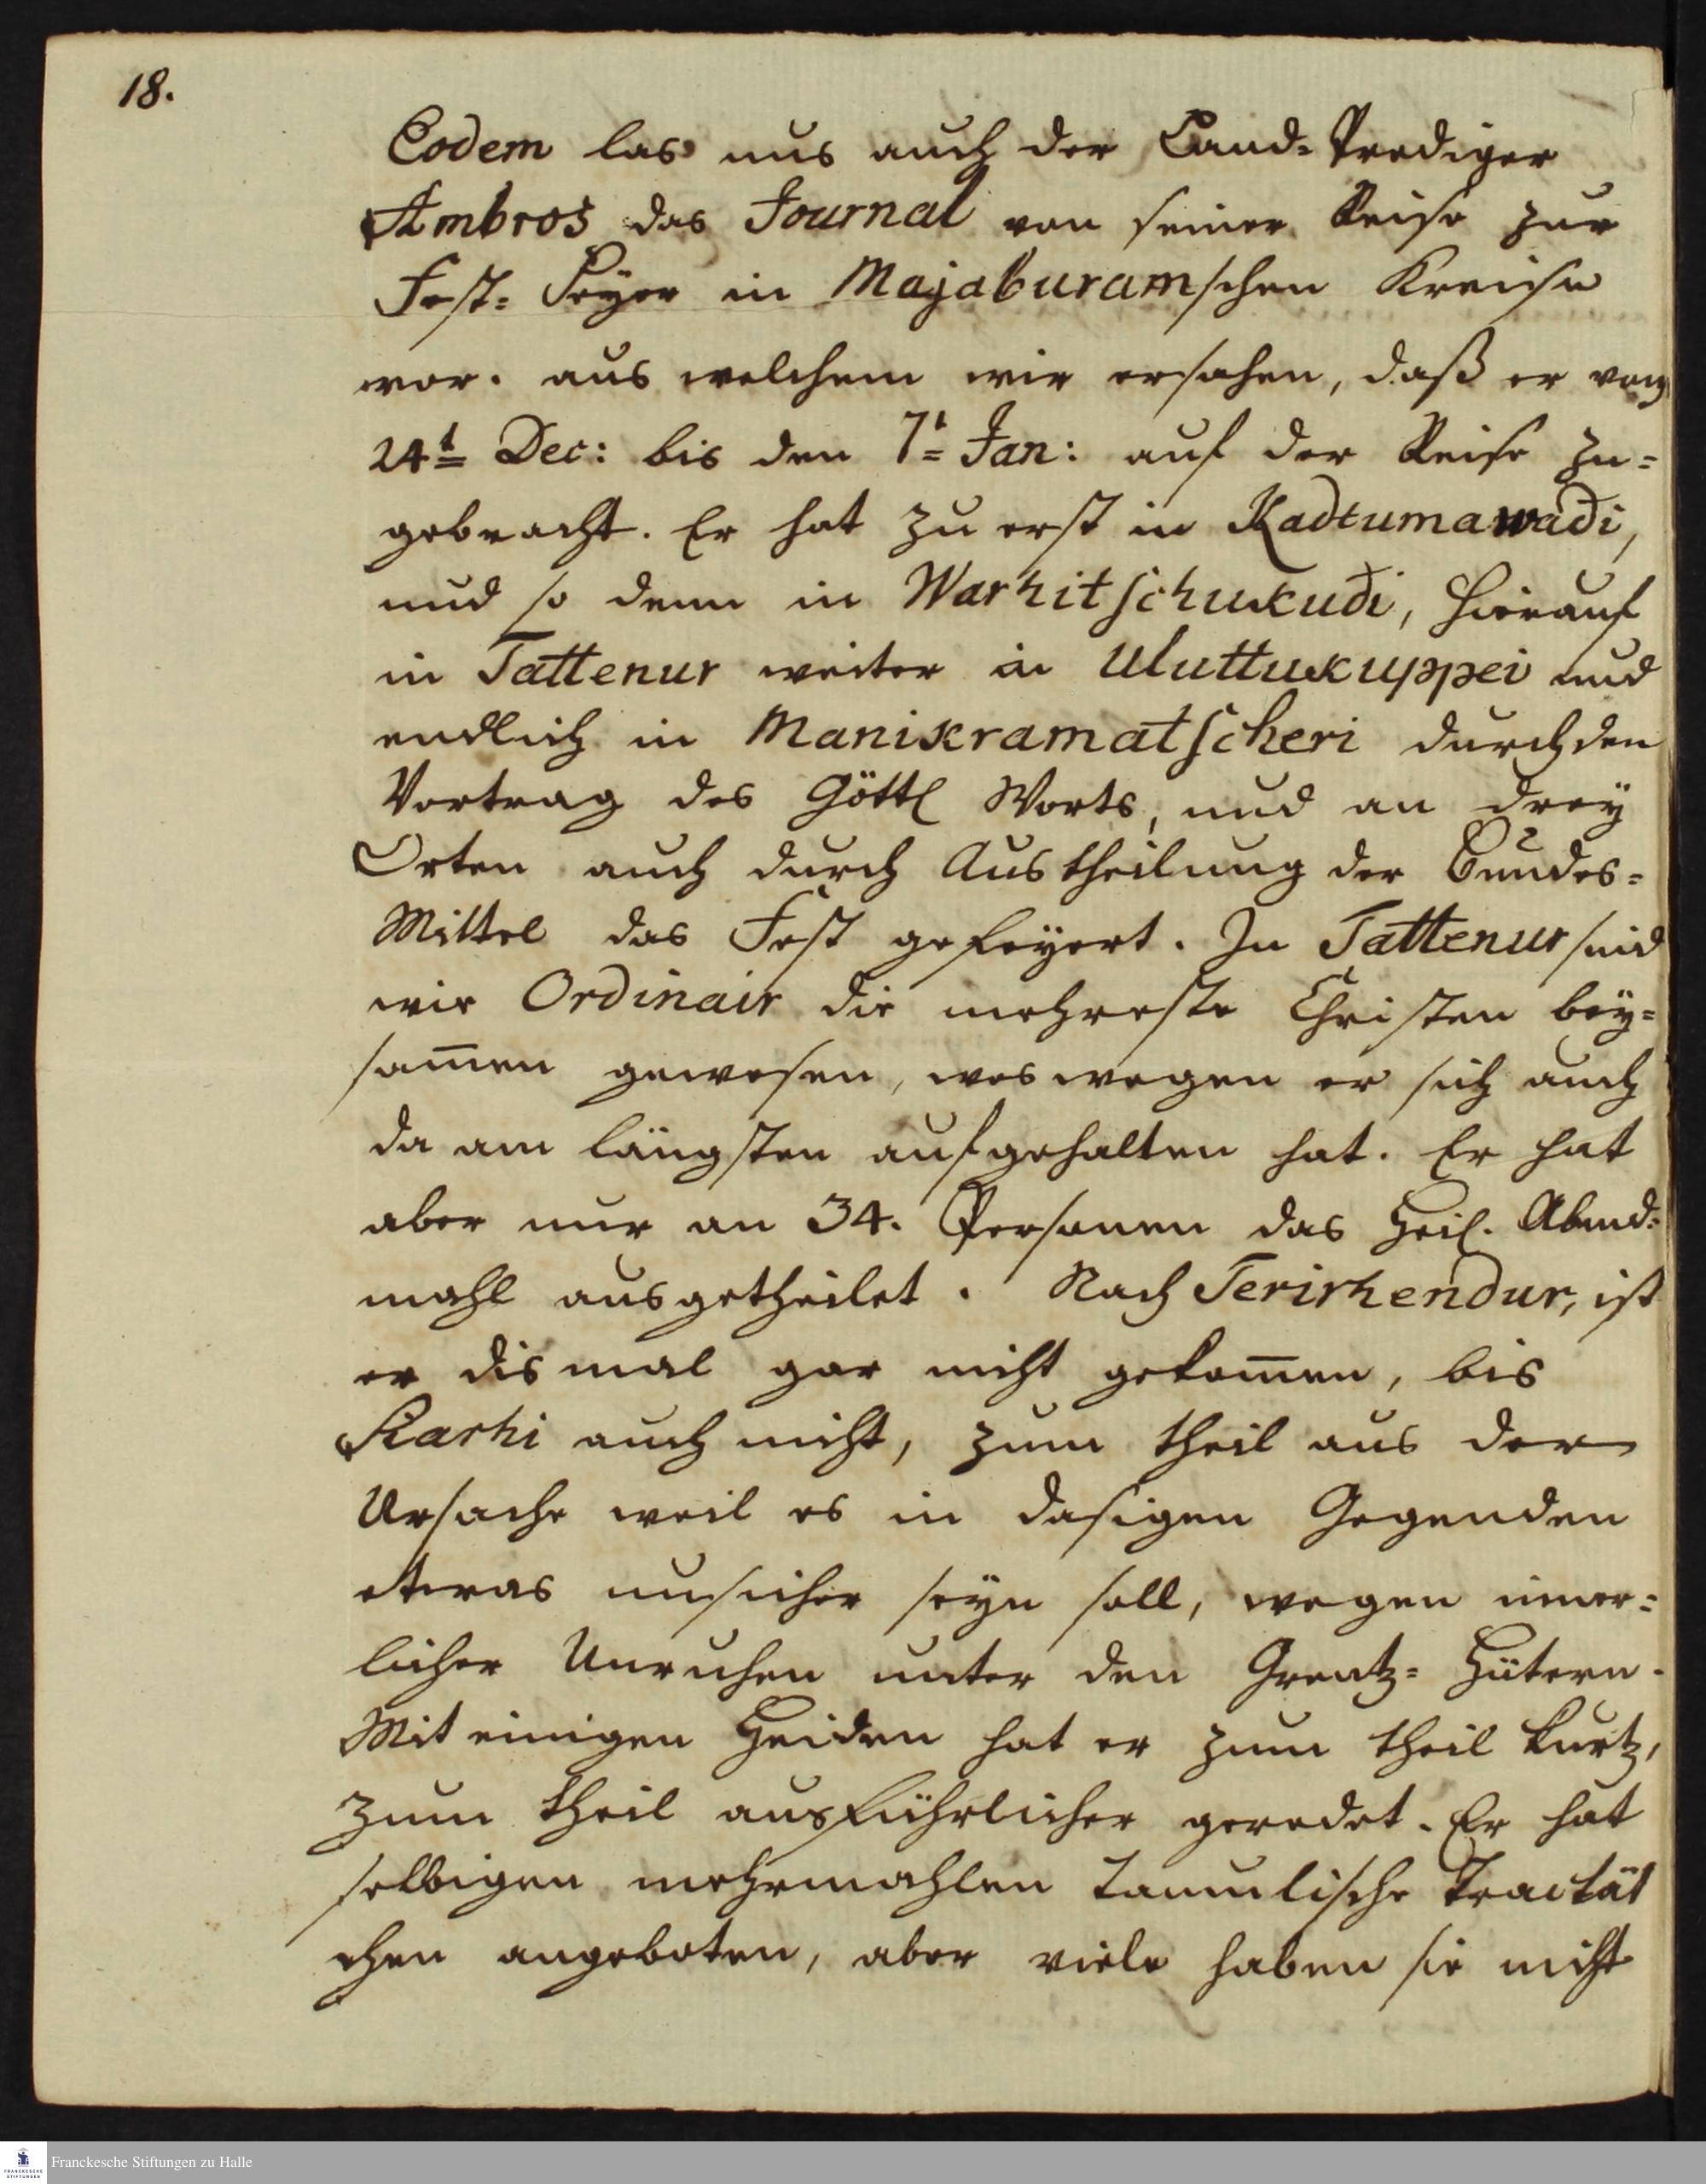 18.
Eodem las uns auch der Land-Prediger
Ambros das Journal von seiner Reise zur
Fest-Feyer in Majaburamschen Kreise
vor. aus welchem wir ersahen, daß er vom
24t Dec: bis den 7t Jan: auf der Reise zu=
gebracht. Er hat zu erst in Kadtumawadi,
und so denn in Warhitschukudi, hierauf
in Tattenur weiter in Uluttukuppei und
endlich in Manikramatscheri durch den
Vortrag des Göttl Worts, und an drey
Orten auch durch Austheilung der Bundes=
Mittel das Fest gefeyert. In Tattenur sind
wie Ordinair die mehreste Christen bey=
sam̅en gewesen, weswegen er sich auch
da am längsten aufgehalten hat. Er hat
aber nur an 34. Personen das Heil. Abend=
mahl ausgetheilet. Nach Terirhendur, ist
er dismal gar nicht gekom̅en, bis
Karhi auch nicht, zum theil aus der
Ursache weil es in dasigen Gegenden
etwas unsicher seyn soll, wegen inner=
licher Unruhen unter den Grentz=Hütern.
Mit einigen Heiden hat er zum theil kurtz,
zum theil ausführlicher geredet. Er hat
selbigen mehrmahlen Tamulische Tractät
chen angeboten, aber viele haben sie nicht
Franckesche Stiftungen zu Halle